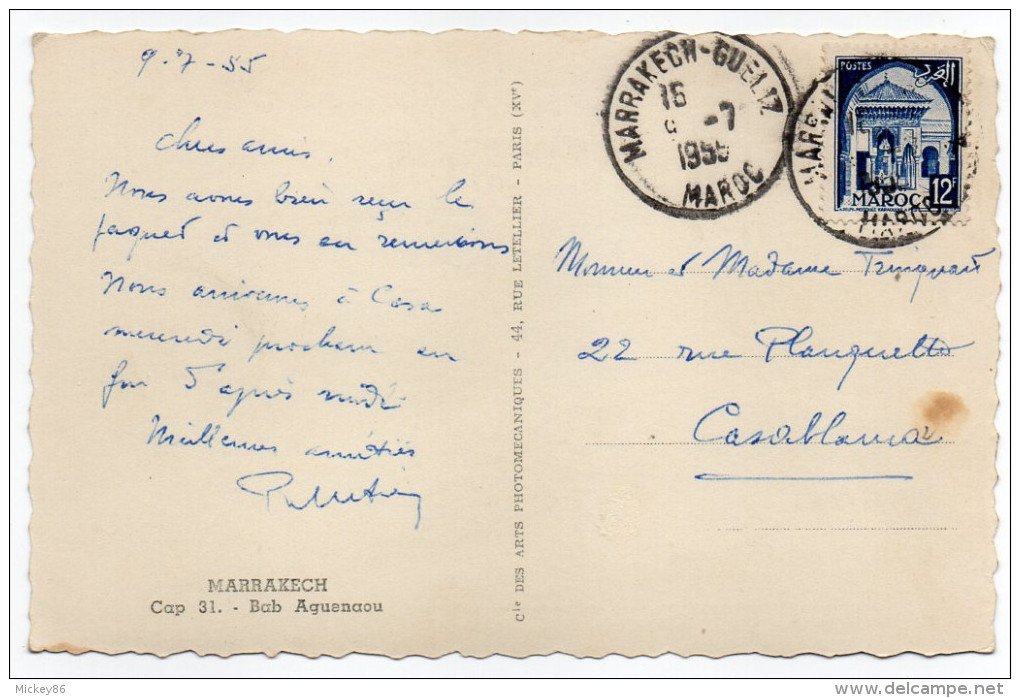 9-7-55
Chers amis.
Nous avons bien reçu le
paquet et vous en remercions
Nous arriverons à Casa
mercredi prochain en
fin d'après midi
Meilleures amitiés
MARRAKECH
Cap 31. - Bab Aguenaou
Cie DES ARTS PHOTOMECANIQUES - 44, RUE LETELLIER - PARIS (XVe)
MARRAKECH-GUELIZ
16
9 -7
1955
MAROC
POSTES
المغرب
MAROC
12F
Monsieur et Madame
22 rue Planquette
Casablanca
Mickey86
www.delcampe.net